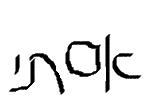 אסתי